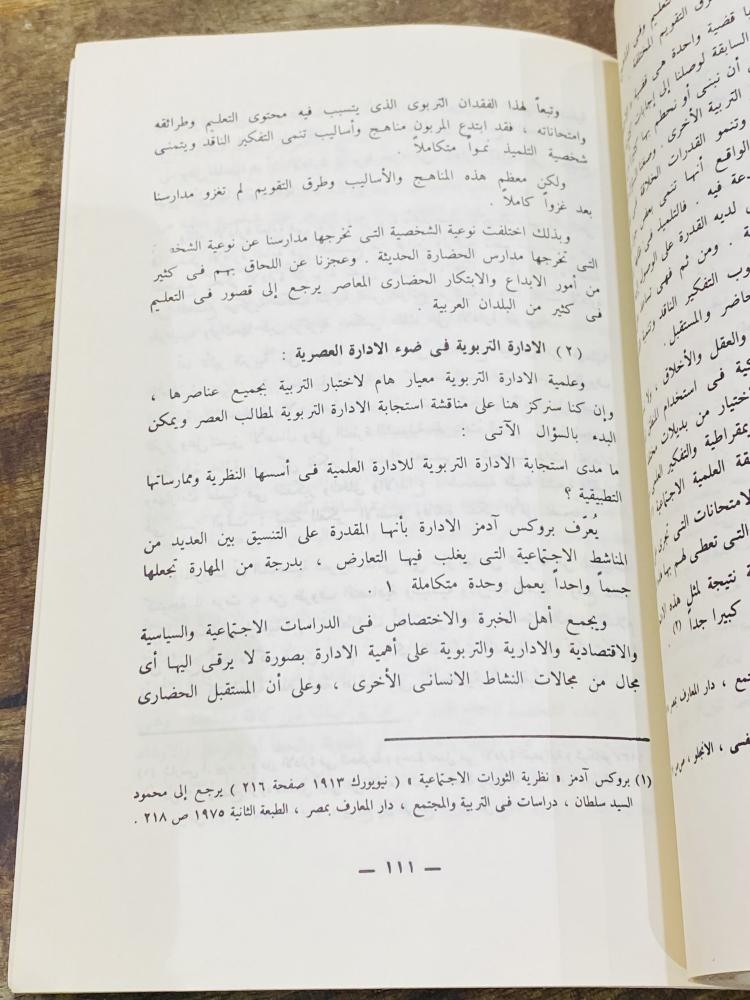 وتبعاً لهذا الفقدان التربوى الذى يتسبب فيه محتوى التعليم وطرائقه
وامتحاناته ، فقد ابتدع المربون مناهج وأساليب تنمى التفكير الناقد ويتمنى
شخصية التلميذ نمواً متكاملاً .
ولكن معظم هذه المناهج والأساليب وطرق التقويم لم تغزو مدارسنا
بعد غزواً كاملاً .
وبذلك اختلفت نوعية الشخصية التى تخرجها مدارسنا عن نوعية الشخص
التى تخرجها مدارس الحضارة الحديثة . وعجزنا عن اللحاق بهم فى كثير
من أمور الابداع والابتكار الحضارى المعاصر يرجع إلى قصور فى التعليم
فى كثير من البلدان العربية .
(٢) الادارة التربوية فى ضوء الادارة العصرية :
وعلمية الادارة التربوية معيار هام لاختبار التربية بجميع عناصرها ،
وإن كنا سنركز هنا على مناقشة استجابة الادارة التربوية لمطالب العصر ويمكن
البدء بالسؤال الآتى :
ما مدى استجابة الادارة التربوية للادارة العلمية فى أسسها النظرية وممارساتها
التطبيقية ؟
يُعرّف بروكس آدمز الادارة بأنها المقدرة على التنسيق بين العديد من
المناشط الاجتماعية التى يغلب فيها التعارض ، بدرجة من المهارة تجعلها
جسماً واحداً يعمل وحدة متكاملة ١ .
ويجمع أهل الخبرة والاختصاص فى الدراسات الاجتماعية والسياسية
والاقتصادية والادارية والتربوية على أهمية الادارة بصورة لا يرقى اليها أى
مجال من مجالات النشاط الانسانى الأخرى ، وعلى أن المستقبل الحضارى
(١) بروكس آدمز « نظرية الثورات الاجتماعية » ( نيويورك ١٩١٣ صفحة ٢١٦ ) يرجع إلى محمود
السيد سلطان ، دراسات فى التربية والمجتمع ، دار المعارف بمصر ، الطبعة الثانية ١٩٧٥ ص ٢١٨ .
— ١١١ —
قضية واحدة هى
السابقة لوصلنا إلى
أن نبنى أو نحطم بها
التربية الأخرى .
وتنمو القدرات
الواقع أنها تنمى
فيه . فالتلميذ
لديه القدرة على
. ومن ثم فهى
التفكير الناقد
والمستقبل .
والعقل والأخلاق ،
فى استخدام
من بديلات
والتفكير
العلمية الاجتماعية
الامتحانات التى
التى تعطى لهم بها
نتيجة لمثل هذه
كبيرا جداً (٢) .
، دار المعارف
، الانجلو ،